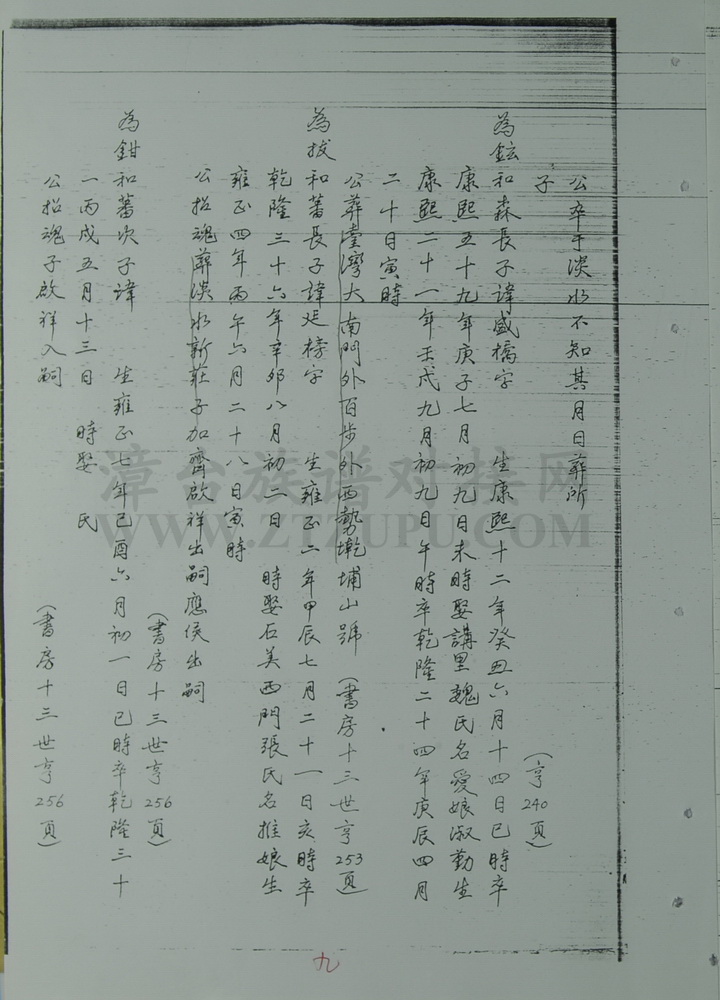 公卒于淡水不知其月日葬所
子
(亨240頁)
為鉉和森長子諱盛橋字 生康熙十二年癸丑六月十四日巳時卒
康熙五十九年庚子七月初九日未時娶講里魏氏名愛娘淑勤生
康熙二十一年壬戌九月初九日午時卒乾隆二十四年庚辰四月
二十日寅時
公葬臺灣大南門外百步外西勢墘埔山號 (書房十三世亨253頁)
為拔和蕃長子諱延榜字 生雍正二年甲辰七月二十一日亥時卒
乾隆三十六年辛卯八月初二日 時娶石美西門張氏名推娘生
雍正四年丙午六月二十八日寅時
公招魂葬淡水新莊子加齊啟祥出嗣應侯出嗣
(書房十三世亨256頁)
為鉗和蕃次子諱 生雍正七年己酉六月初一日巳時卒乾隆三十
一丙戌五月十三日 時娶 氏
公招魂子啟祥入嗣 (書房十三世亨256頁)
九
漳台族谱对接网
WWW.ZTZUPU.COM